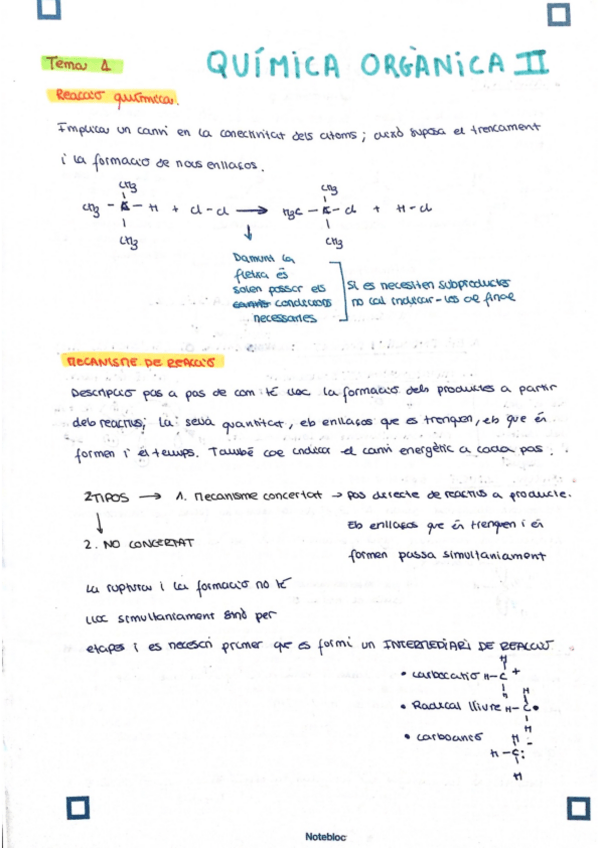 Tema 1
QUÍMICA ORGÀNICA II
Reacció química.
Implica un canvi en la conectivitat dels àtoms; això suposa el trencament
i la formació de nous enllaços.
CH3 CH3
CH3 - C - H + Cl - Cl → H3C - C - Cl + H - Cl
CH3 CH3
Damunt la
fletxa és
solen possar els
condicions
necessaries
Si es necesiten subproductes
no cal indicar-los al final
MECANISME DE REACCIÓ
Descripció pas a pas de com té lloc la formació dels productes a partir
dels reactius; la seva quantitat, els enllaços que es trenquen, els que és
formen i el temps. També cal indicar el canvi energètic a cada pas.
2 TIPOS → 1. Mecanisme concertat → Pas directe de reactius a producte.
Els enllaços que és trenquen i és
formen passa simultaniament
2. NO CONCERTAT
La ruptura i la formació no té
lloc simultaniament sinó per
etapes i es necesari primer que es formi un INTERMEDIARI DE REACCIÓ
• carbocatió H - C +
H
H
• Radical lliure H - C •
H
H
• carboanió
H - C :
H
H
-
Notebloc